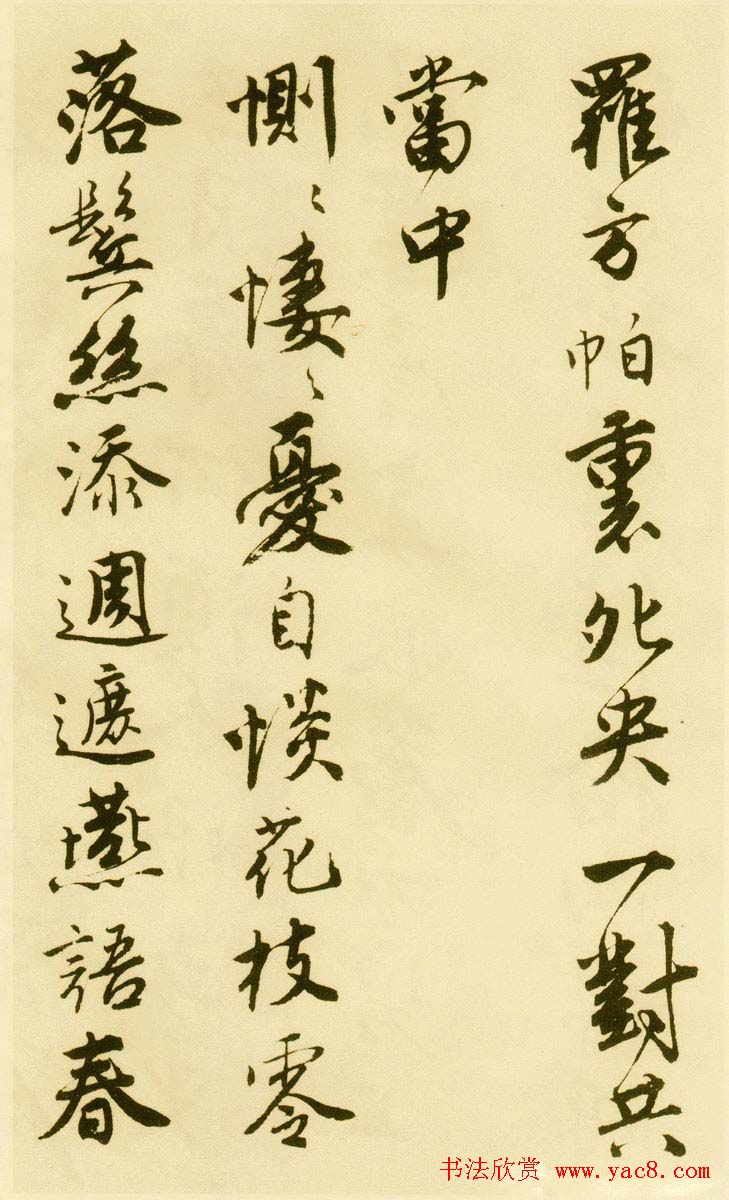 羅方帕裏夗央一對共
當中
惻〻悽〻憂自惔花枝零
落鬢絲添週遮燕語春
书法欣赏 www.yac8.com